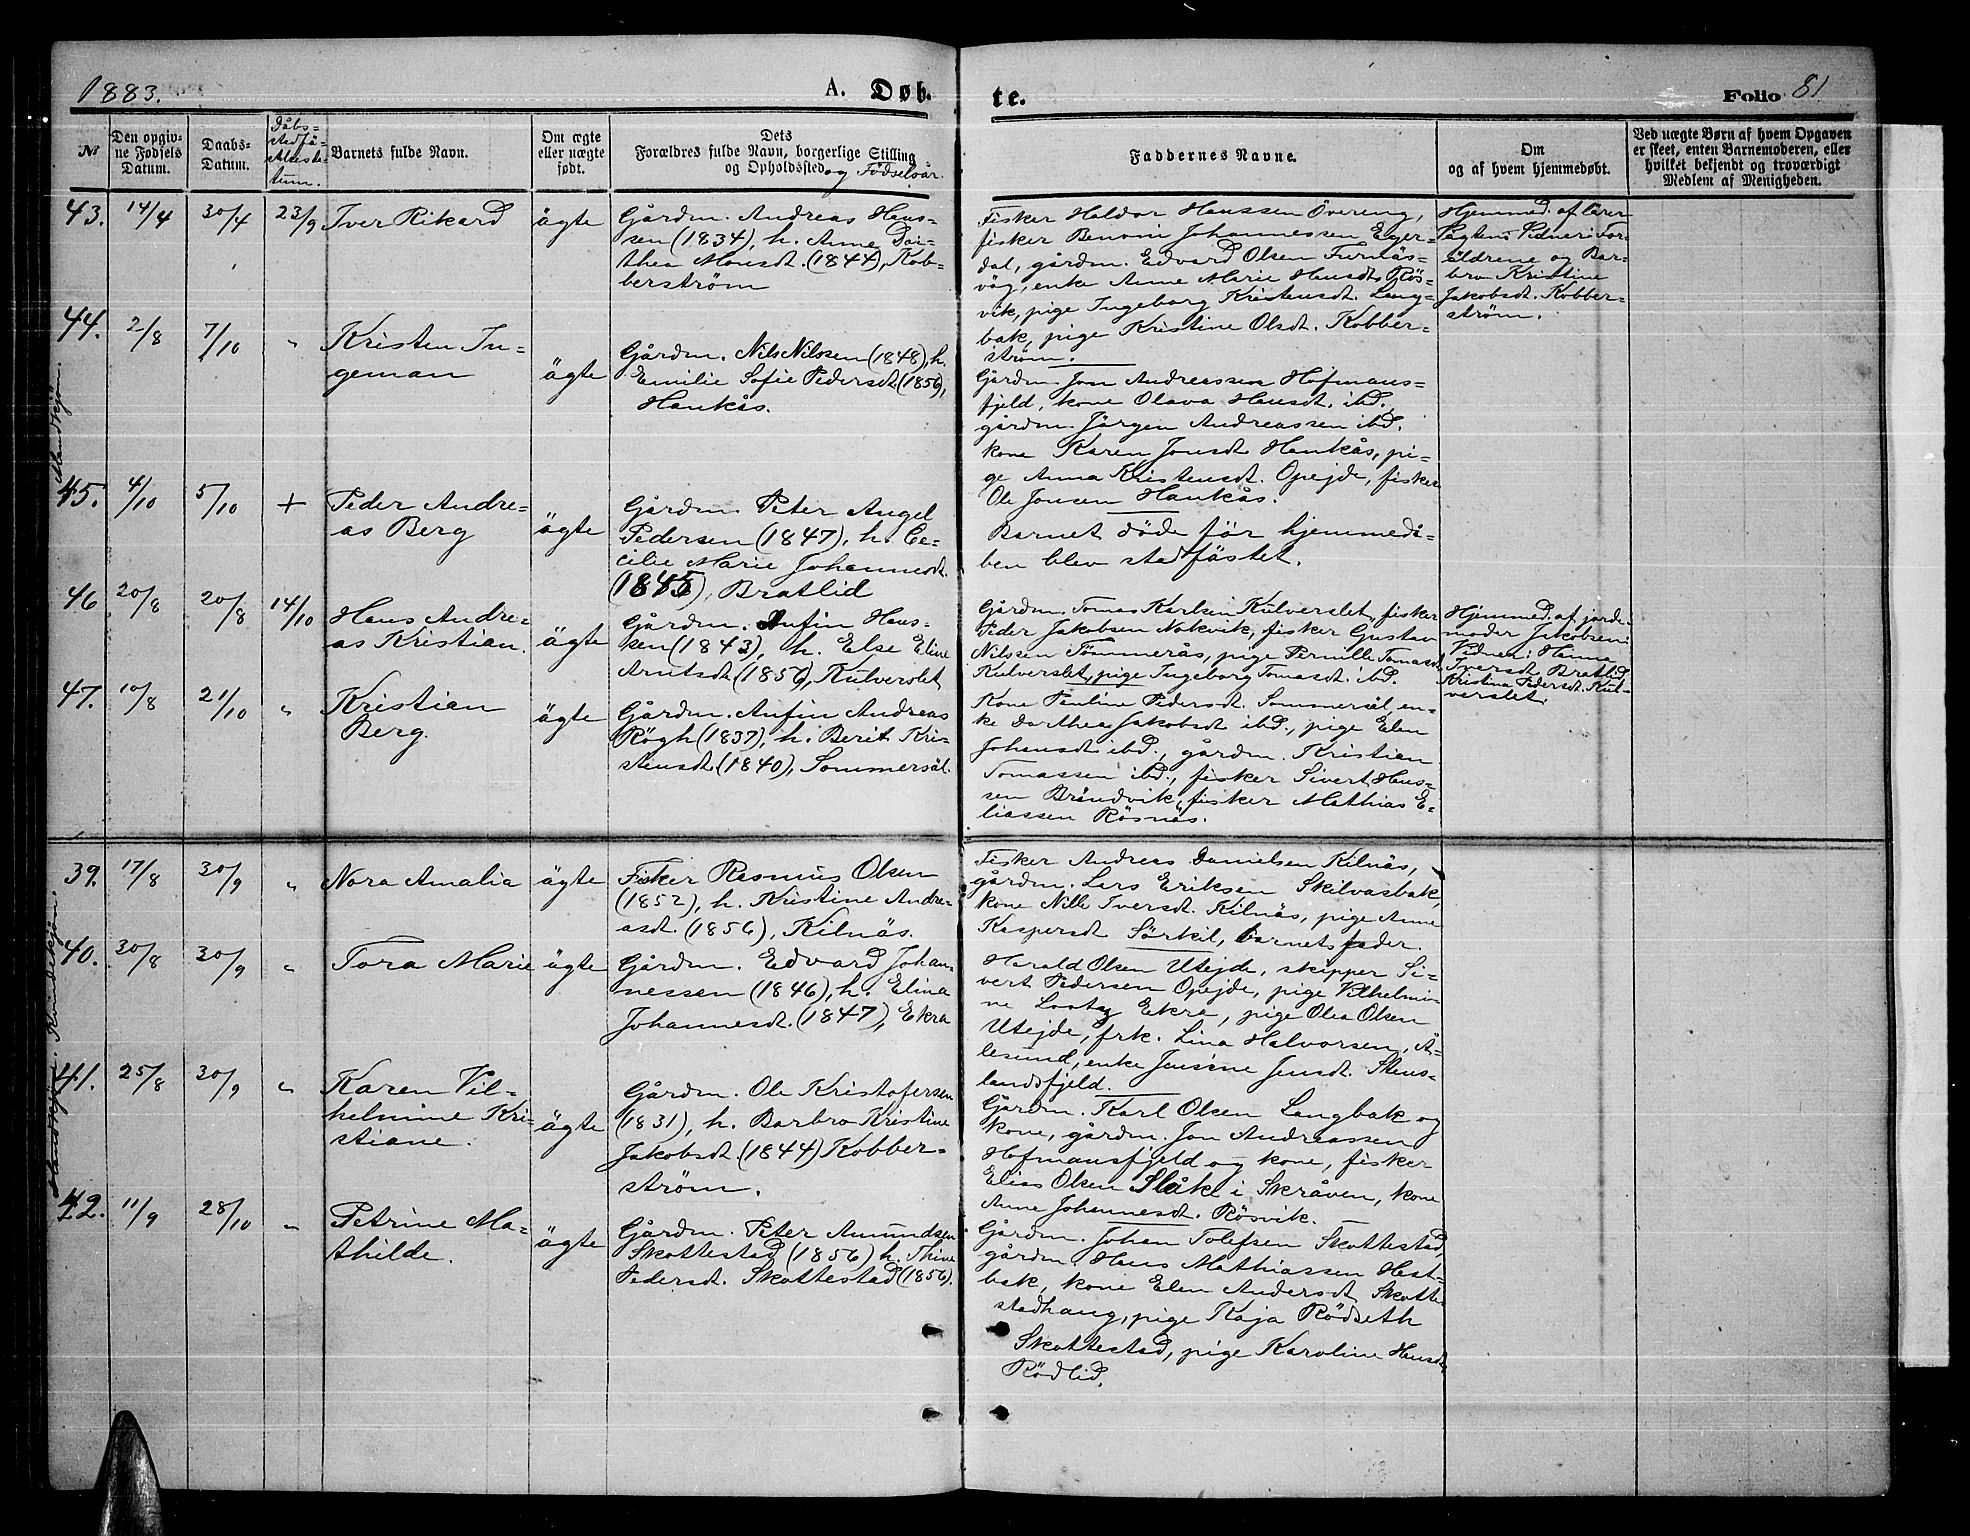 1883.
A. Døb-
te.
Folio 81
№
Den opgiv-
ne Fødsels
Datum.
Daabs-
Datum.
Dåbs-
stedfä-
stelsesda-
tum.
Barnets fulde Navn.
Om ægte
eller uægte
født.
Dets
Forældres fulde Navn, borgerlige Stilling
og Opholdssted og Fødselsår.
Faddernes Navne.
Om
og af hvem hjemmedøbt.
Ved uægte Børn af hvem Opgaven
er skeet, enten Barnemoderen, eller
hvilket bekjendt og troværdigt
Medlem af Menigheden.
Mandkjøn.
43. 14/4 30/4 23/9 Iver Rikard ägte
Gårdm. Andreas Hans-
sen (1834), h. Anne Dor-
thea Monsdt. (1844), Kob-
berström
Fisker Haldor Hanssen Övereng,
fisker Benoni Johannessen Eger-
dal, gårdm. Edvard Olsen Furnäs-
våg, enke Anne Marie Hansdt. Rös-
vik, pige Ingeborg Kristensdt. Lang-
bak, pige Kristine Olsdt. Kobber-
ström.
Hjemmed. af lärer
Vidner: For-
äldrene og Bar-
bro Kristine
Jakobsdt. Kobber-
ström.
44. 2/8 7/10 " Kristen In-
geman ägte
Gårdm. Nils Nilssen (1848), h.
Emilie Sofie Pedersdt. (1856),
Hankås.
Gårdm. Jon Andreassen Hofmans-
fjeld, kone Olava Hansdt. ibd.,
gårdm. Jörgen Andreassen ibd.
kone Karen Jonsdt. Hankås, pi-
ge Anna Kristensdt. Opejde, fisker
Ole Jonsen Hankås.
45. 4/10 5/10 + Peder Andre-
as Berg ägte
Gårdm. Peter Angel
Pedersen (1847), h. Ce-
cilie Marie Johannesdt.
(1845), Bratlid
Barnet döde för hjemmedå-
ben blev stadfästet.
46 20/8 20/8 14/10 Hans Andre-
as Kristian. ägte
Gårdm. Anfin Hans-
sen (1843), h. Else Eline
Arntsdt. (1856), Kulverslet
Gårdm. Tomas Karlsen Kulverslet, fisker
Peder Jakobsen Nokvik, fisker Gustav
Nilssen Tömmerås, pige Pernille Tomasdt.
Kulverslet, pige Ingeborg Tomasdt. ibd.
Hjemmed. af jorde-
moder Jakobsen:
Vidner: Hanna
Iversdt. Bratlid,
Kristina Pedersdt. Kul-
verslet.
47. 10/8 21/10 " Kristian
Berg. ägte
Gårdm. Anfin Andreas
Rögh (1837), h. Berit Kri-
stensdt. (1840), Sommersäl.
Kone Pauline Pedersdt. Sommersäl, en-
ke Dorthea Jakobsdt. ibd., pige Elen
Johansdt. ibd., gårdm. Kristian
Tomassen ibd., fisker Sivert Hans-
sen Brändvik, fisker Mathias E-
liassen Rösnäs.
Kvindekjön.
39. 17/8 30/9 " Nora Amalia ägte
Fisker Rasmus Olsen
(1852), h. Kristine Andre-
asdt. (1856), Kilnäs.
Fisker Andreas Danielsen Kilnäs,
gårdm. Lars Eriksen Skilvasbak,
kone Nille Iversdt. Kilnäs, pige Anne
Kaspersdt Sörkil, barnets fader.
40. 30/8 30/9 " Tora Marie ägte
Gårdm. Edvard Johan-
nessen (1846), h. Elina
Johannesdt. (1847), Ekra
Harald Olsen Utejde, skipper Si-
vert Pedersen Opejde, pige Vilhelmi-
ne Ekra, pige Olea Olsen
Utejde, frk. Lina Halvorsen, Å-
lesund, enke Jensine Jensdt. Stens-
landsfjeld.
41. 25/8 30/9 " Karen Vil-
helmine Kri-
stiane. ägte
Gårdm. Ole Kristofersen
(1831), h. Barbro Kristine
Jakobsdt. (1844) Kobber-
ström.
Gårdm. Karl Olsen Langbak og
kone, gårdm. Jon Andreassen
Hofmansfjeld og kone, fisker
Elias Olsen Slåke i Skråven, kone
Anne Johannesdt. Rösvik.
42. 11/9 28/10 " Petrine Ma-
thilde. ägte
Gårdm. Peter Amundsen
Skottestad (1856) h. Thine
Pedersdt. Skottestad (1856).
Gårdm. Johan Tolefsen Skottestad,
gårdm. Hans Mathiassen Hest-
bak, kone Elen Andersdt. Skotte-
stadhaug, pige Kaja Rödseth
Skottestad, pige Karoline Hansdt.
Rödlid.